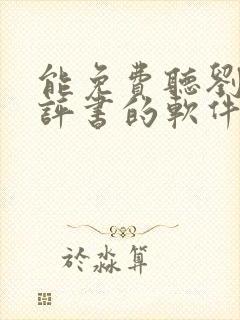 能免費聽劉
評書的軟件
於淼算